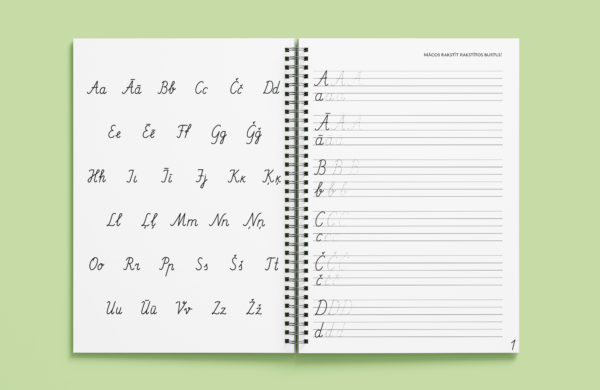 Aa Āā Bb Cc Čč Dd
Ee Ēē Ff Gg Ģģ
Hh Ii Īī Jj Kk Ķķ
Ll Ļļ Mm Nn Ņņ
Oo Rr Pp Ss Šš Tt
Uu Ūū Vv Zz Žž
MĀCOS RAKSTĪT RAKSTĪTOS BURTUS!
A A A
a a a
Ā Ā Ā
ā ā ā
B B B
b b b
C C C
c c
Č Č Č
č č č
D D D
d d d
1